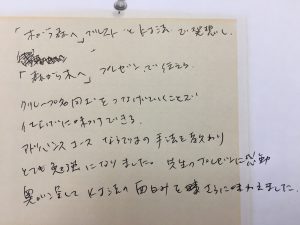 「木から森へ」ブレスト とKJ法 で発想し、
「森から木へ」プレゼン で伝える。
グループ名同士をつなげていくことで
イメージに味付できる。
アドバンスコース ならではの手法を教わり
とても勉強になりました。先生のプレゼンに感動
KJ法の面白みをさらに味わえました。